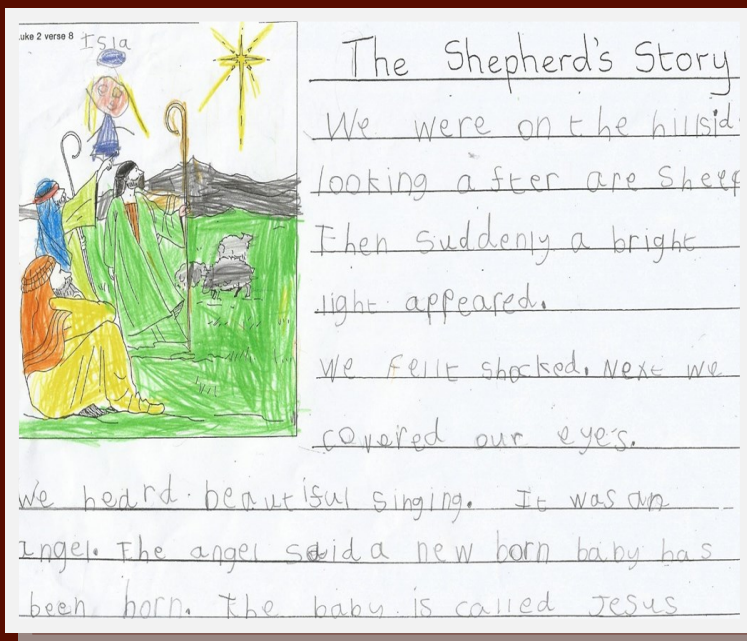 uke 2 verse 8
Isla
The Shepherd's Story
We were on the hillsid
looking after are Sheep
Then suddenly a bright
light appeared.
We fellt shocked. Next we
covered our eye's.
We heard beautiful singing. It was an
angel. The angel said a new born baby has
been born. The baby is called Jesus